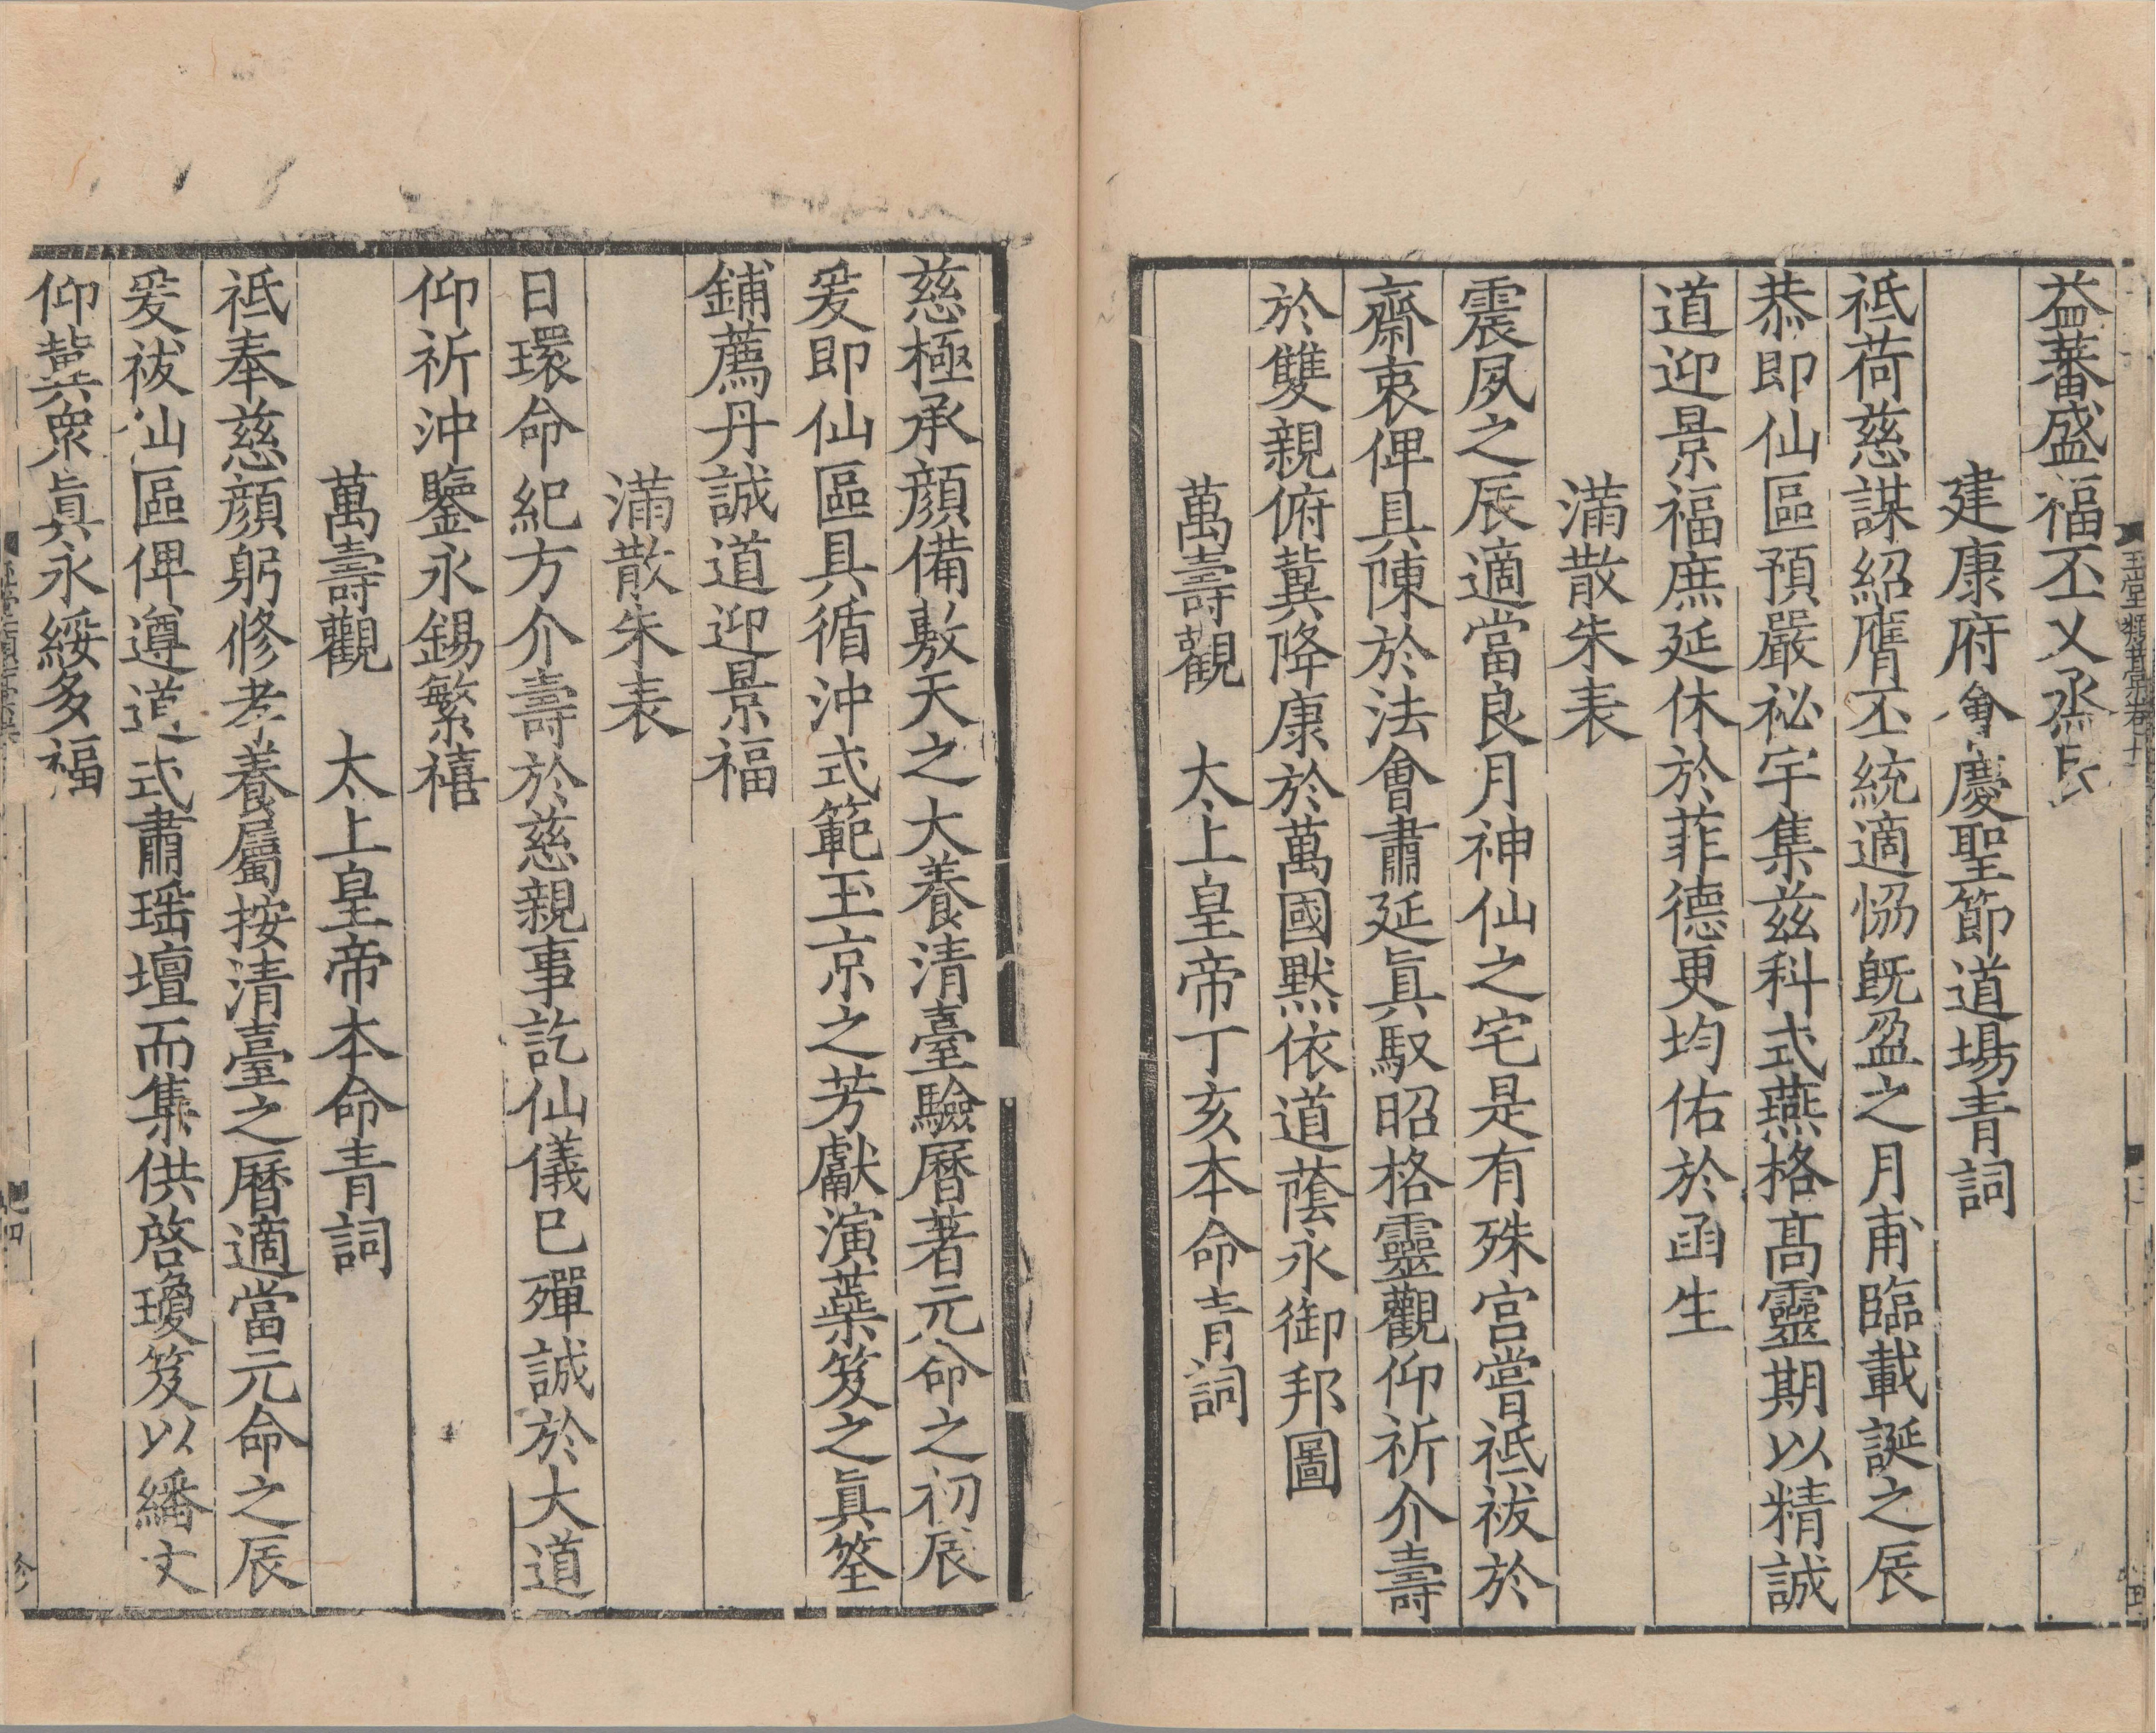 益蕃盛福丕乂烝民
建康府會慶聖節道場青詞
祗荷慈謀紹膺丕統適協旣盈之月甫臨載誕之辰
恭即仙區預嚴祕宇集兹科式燕格髙靈期以精誠
道迎景福庶延休於菲德更均佑於函生
滿散朱表
震夙之辰適當良月神仙之宅是有殊宫嘗祗祓於
齋衷俾具陳於法會肅延眞馭昭格靈觀仰祈介壽
於雙親俯冀降康於萬國默依道蔭永御邦圖
萬壽觀　太上皇帝丁亥本命青詞
慈極承顔備敷天之大養清臺驗曆著元命之初辰
爰即仙區具循沖式範玉京之芳獻演蘂笈之眞筌
鋪薦丹誠道迎景福
滿散朱表
日環命紀方介壽於慈親事訖仙儀已殫誠於大道
仰祈沖鑒永錫繁禧
萬壽觀　太上皇帝本命青詞
祗奉慈顔躬修孝養屬按清臺之曆適當元命之辰
爰祓仙區俾遵道式肅瑶壇而集供啓瓊笈以繙文
仰冀衆眞永綏多福